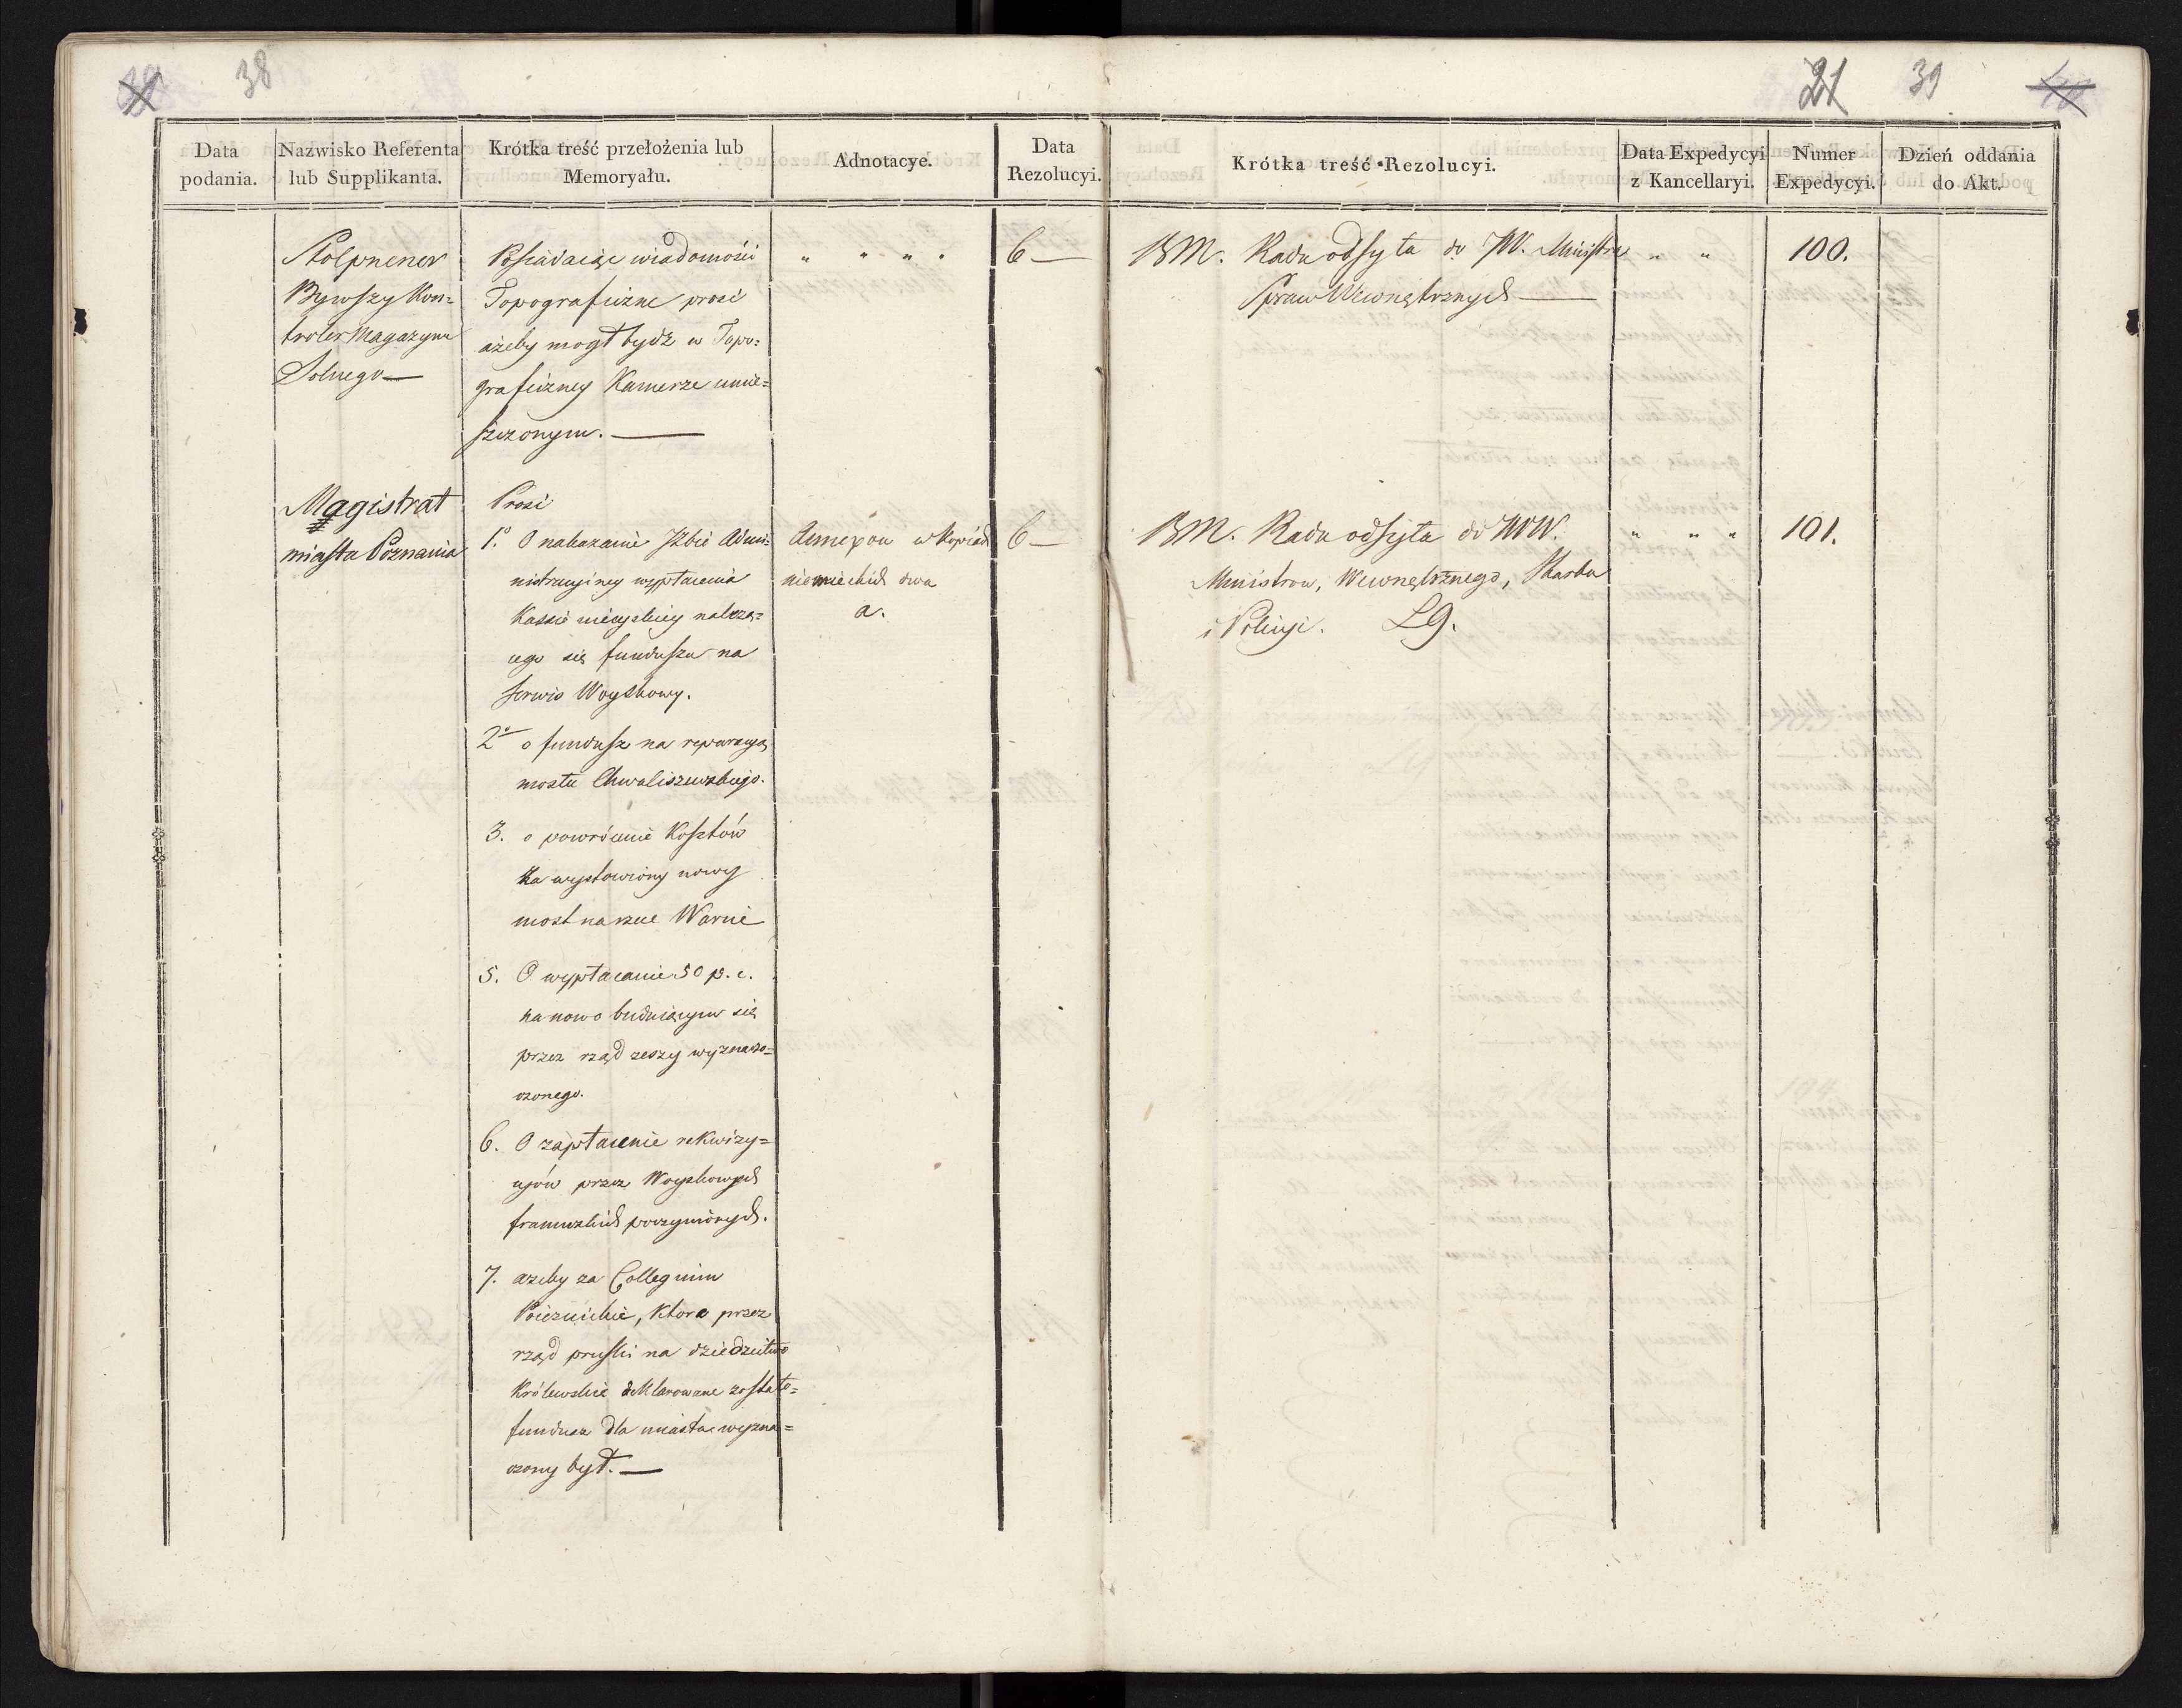 38
21 39
Data podania.
Nazwisko Referenta lub Supplikanta.
Krótka treść przełożenia lub Memoryału.
Adnotacye.
Data Rezolucyi.
Krótka treść Rezolucyi.
Data Expedycyi z Kancellaryi.
Numer Expedycyi.
Dzień oddania do Akt.
Stolpnener
Bywszy Kon=
troler Magazynu
Solnego —
Posiadaiąc wiadomości
Topograficzne prosi
ażeby mogł bydź w Topo=
graficzney Kamerze umie=
szczonym. —
" " " "
6 —
BM. Rada odsyła do JW. Ministra
Spraw Wewnętrznych —
" "
100.
Magistrat
miasta Poznania
Prosi
1.o O nakazanie Izbie Admi=
nistracyiney wypłacenia
Kassie mieyskiey należą=
cego się funduszu na
serwis Woyskowy.
2o o fundusz na reparacyą
mostu Chwaliszewskiego.
3. o powrócenie Kosztów
za wystawiony nowy
most na rzece Warcie
5. O wypłacanie 50 p. c.
na nowo buduiącym się
przez rząd zeszły wyznac=
czonego.
6. O zapłacenie rekwizy=
cyów przez Woyskowych
francuzkich poczynionych.
7. azeby za Collegium
Poiezuickie, ktore przez
rząd pruski na dziedzictwo
Królewskie deklarowane zostało=
fundusz dla miasta wyzna=
czony był. —
Annexow w kopiach
niemieckich dwa
a.
6 —
BM. Rada odsyła do WW.
Ministrow, Wewnętrznego, Skarbu
i Policyi. LG.
" " "
101.